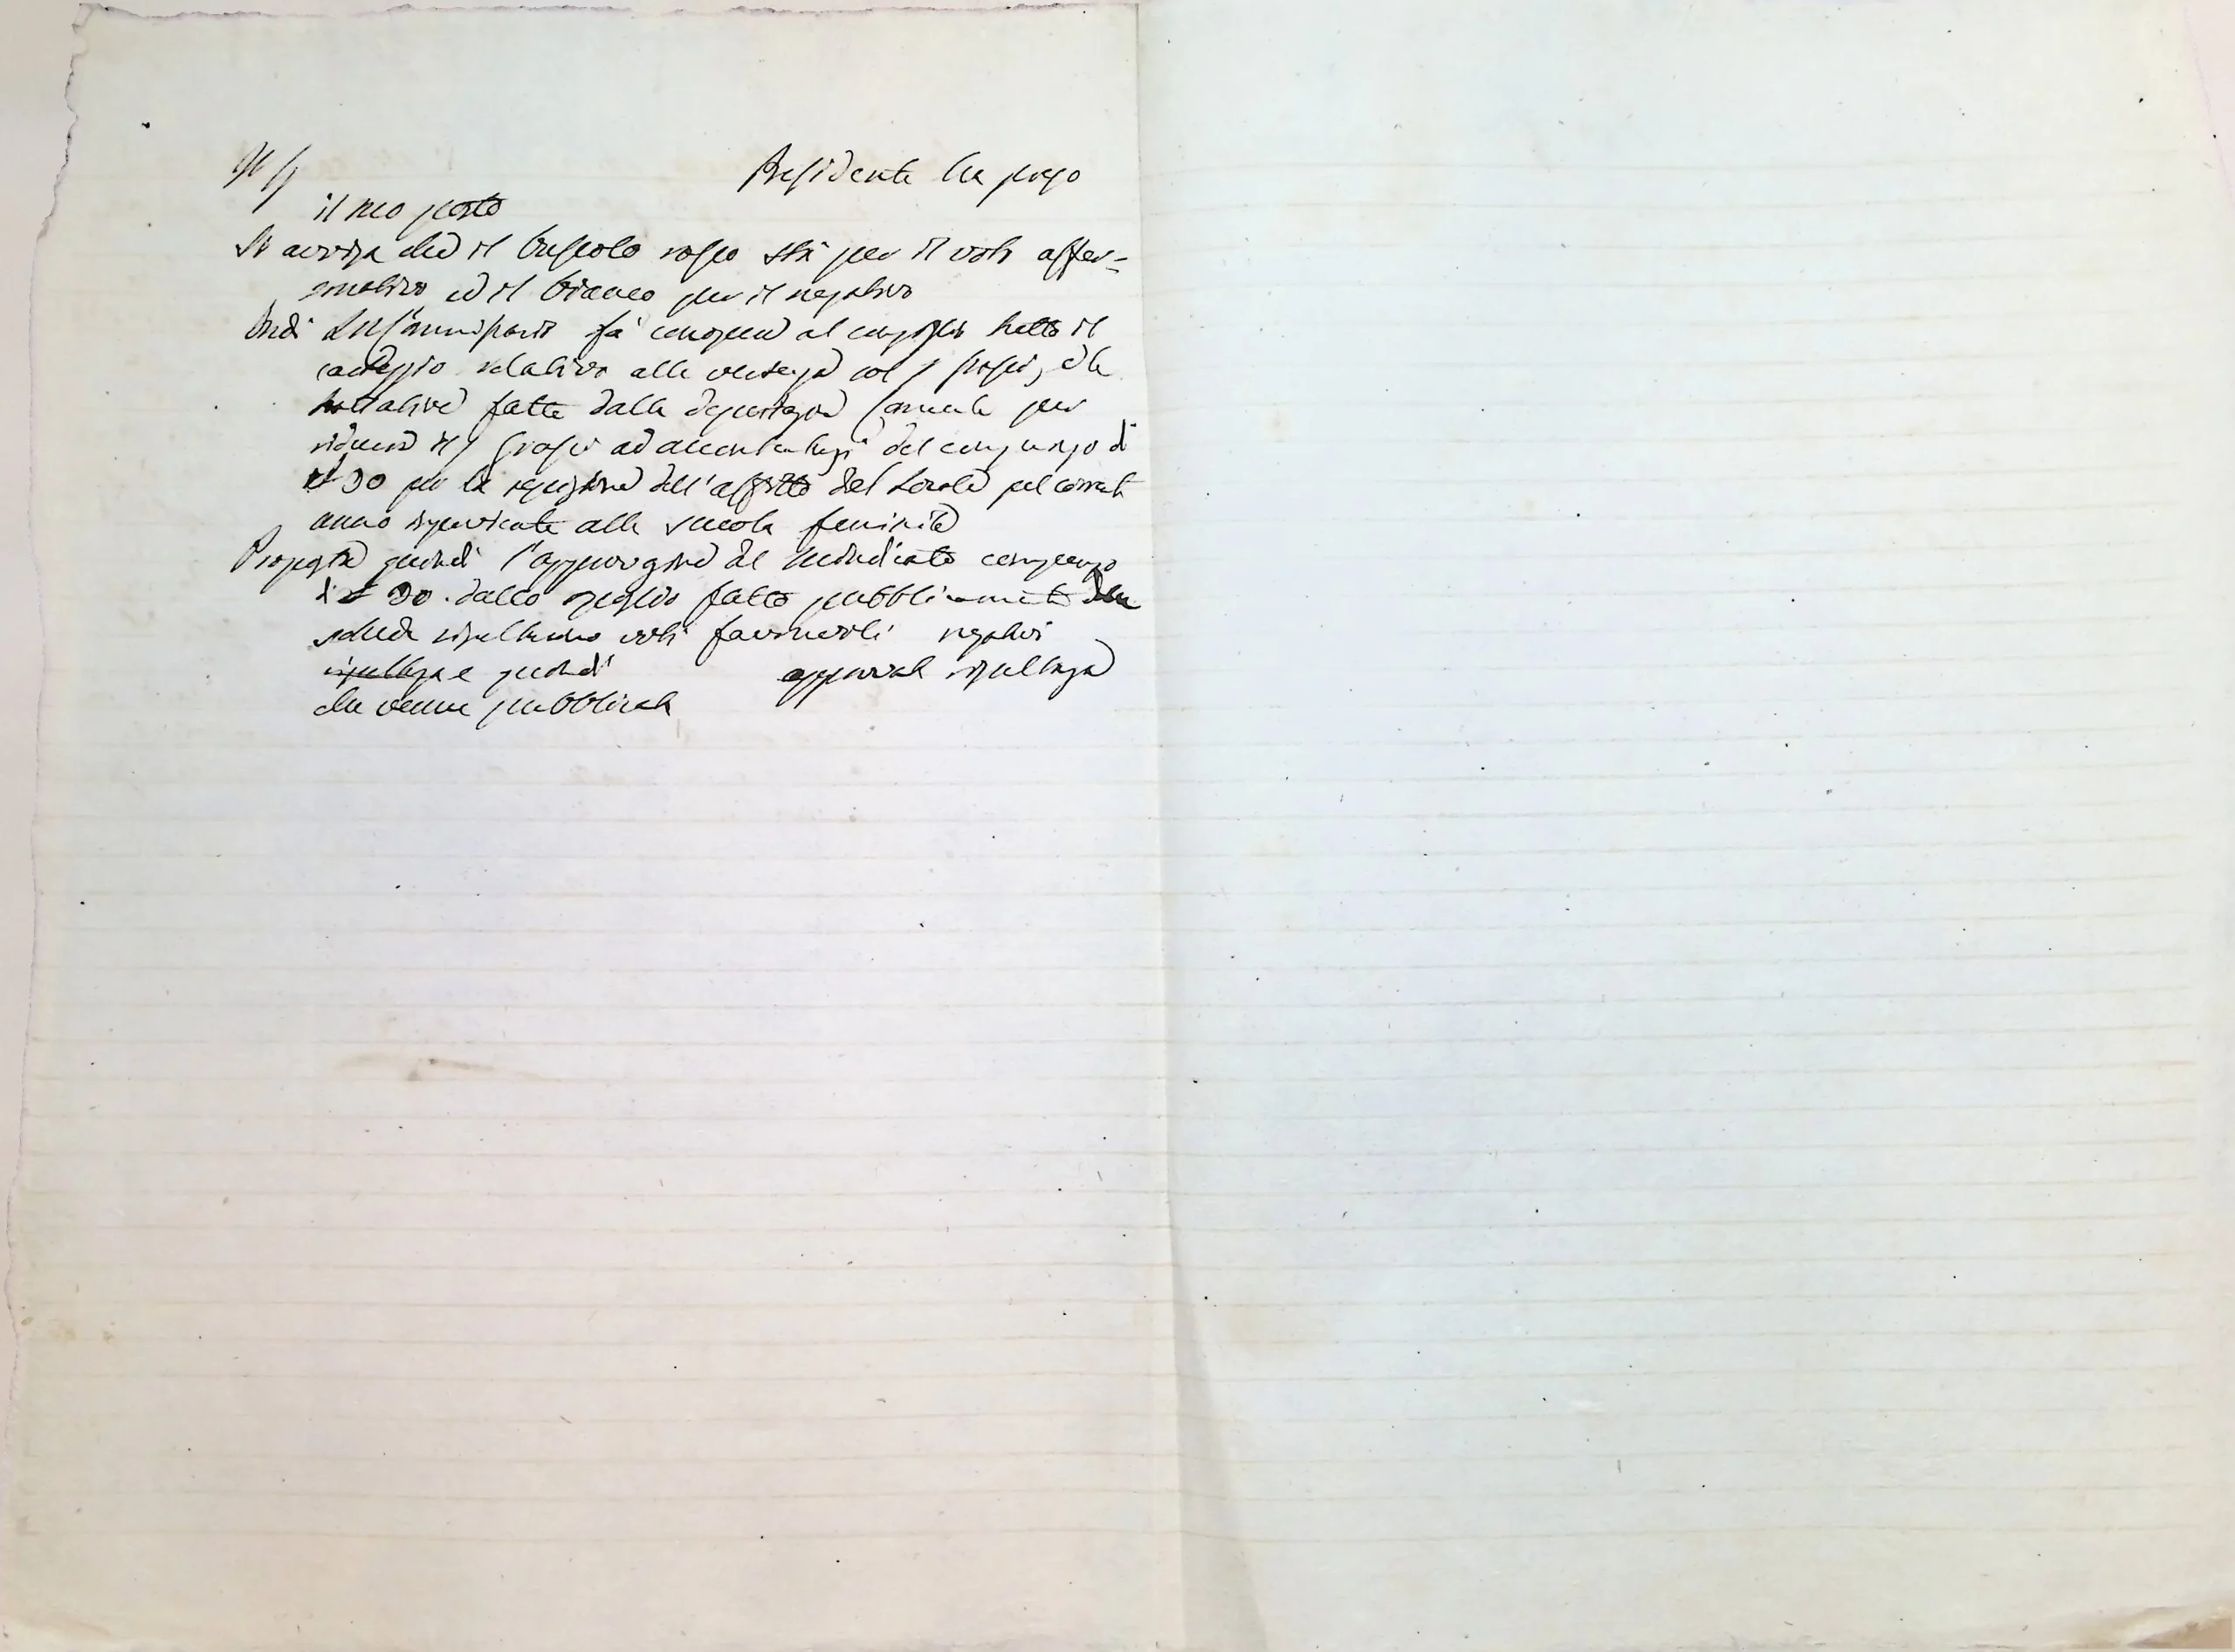 Il Sig. Presidente ha preso
il suo posto
Si avvisa che il bussolo rosso stà per il voto affer=
mativo ed il bianco per il negativo
Indi fa' conoscere al consiglio tutto il
carteggio relativo alla vertenza col S. Grossi, e le
trattative fatte dalla deputazione Comunale per
ridurre il S. Grossi ad accontentarsi del compenso di
£ 30 per la rescissione dell'affitto del Locale pel corrente
anno inserviente alla scuola feminile
Propone quindi l'approvazione del sindicato compenso
di £ 30. dallo spoglio fatto pubblicamente delle
schede risultarono voti favorevoli negativi
e quindi approvata risultanza
che venne pubblicata